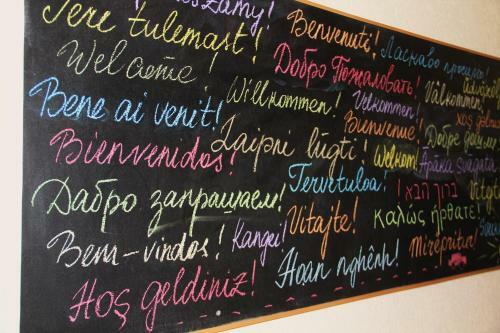 Tere tulemast!
Welcome!
Bene ai venit!
Bienvenidos!
Дабро запрашаем!
Bem-vindos!
Hoş geldiniz!
Benvenuti!
Добро Пожаловать!
Willkommen!
Laipni lūgti!
Kangei!
Ласкаво просимо!
Velkommen!
Bienvenue!
Tervetuloa!
Vitajte!
Hoan nghênh!
Välkommen!
Welkom!
Добре дошли!
Apāka Svāgata
ברוך הבא!
καλώς ήρθατε!
Mirëpritur!